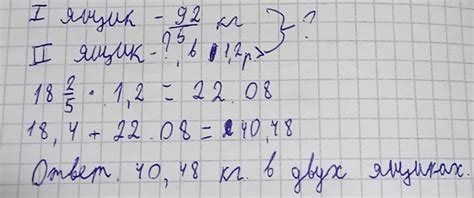 I ящик - 92/5 кг } ?
II ящик - ?, в 1,2 р >
18 2/5 · 1,2 = 22.08
18,4 + 22.08 = 40,48
Ответ. 40,48 кг. в двух ящиках.